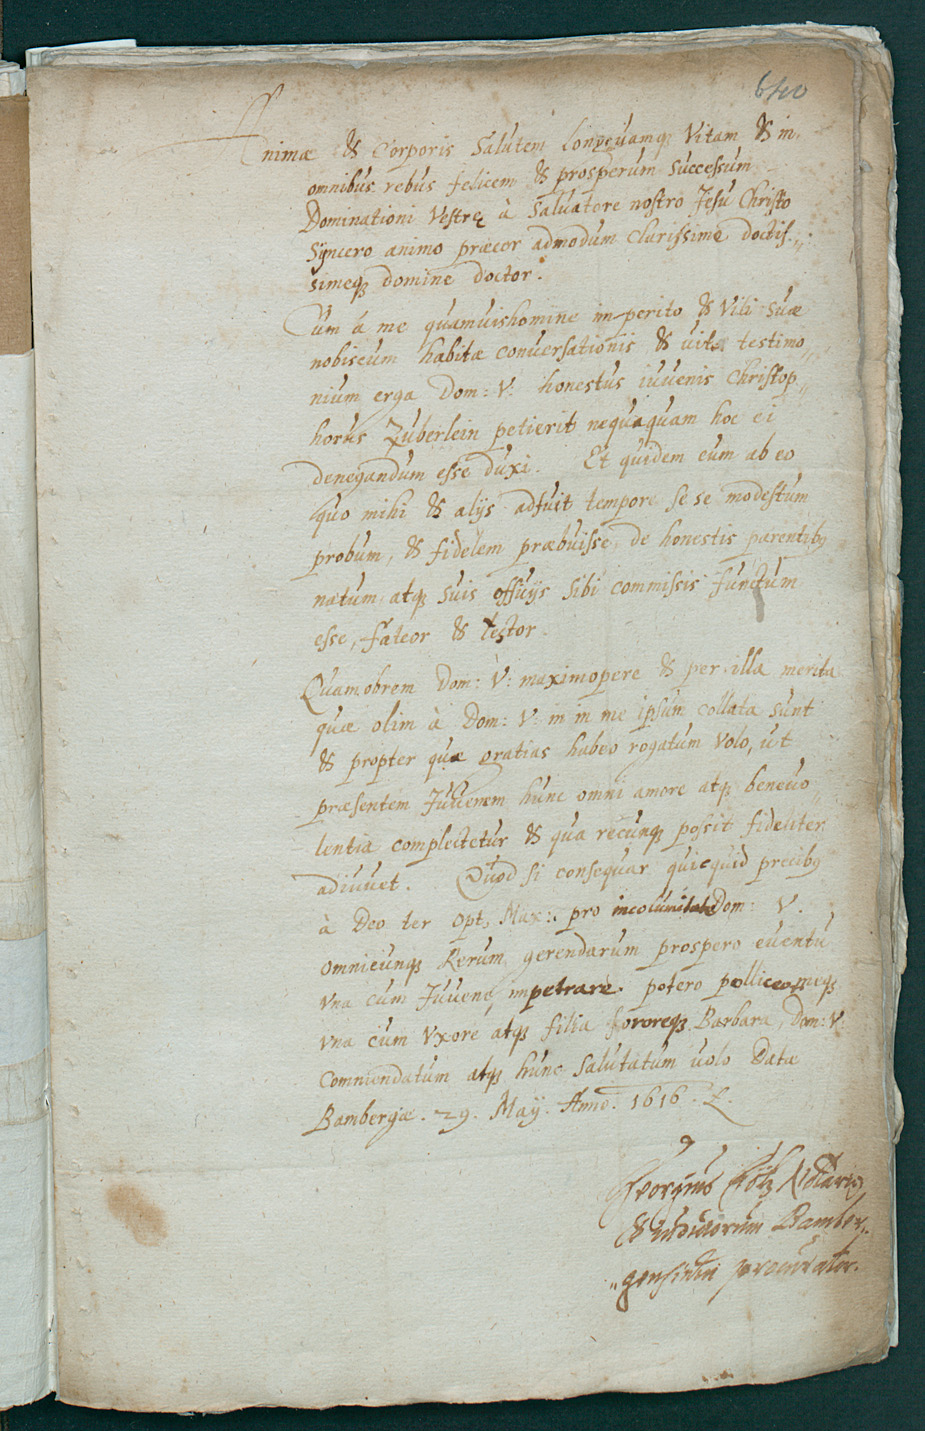 640
Animæ & Corporis Salutem longeuamq; Vitam & in
omnibus rebus felicem & prosperum Successum
Dominationi Vestrę à Saluatore nostro Jesu Christo
Syncero animo præcor admodum Clarissime doctis„
simeq; domine doctor.
Cum á me quamuishomine imperito & Vili suæ
nobiscum habitæ conuersationis & uitæ testimo„
nium erga Dom: V: honestus iuuenis Christop„
horus Zuberlein petierit nequaquam hoc ei
denegandum esse duxi. Et quidem eum ab eo
quo mihi & alijs adfuit tempore se se modestum
probum, & fidelem præbuisse, de honestis parentibꝰ
natum, atq; suis offitijs sibi commissis functum
esse, fateor & testor.
Quamobrem Dom: V: maximopere & per illa merita
quæ olim à Dom: V: in in me ipsum collata sunt
& propter quæ gratias habeo rogatum Volo, ut
præsentem Juuenem hunc omni amore atq; beneuo„
lentia complectetur & qua recunq; possit fideliter
adiuuet. Quod si consequar quicquid precibꝰ
à Deo ter Opt, Max: pro incolumitate Dom: V.
omniumq; Rerum gerendarum prospero euentu
vna cum Juuene, impetrare potero polliceor, meq;
vna cum Vxore atq; filia sororeq; Barbara, Dom: V:
Commendatum atq; hunc salutatum uolo Data
Bambergæ. 29. Maij. Anno. 1616.
Georgius Notariꝰ
& iudiciorum Bamber„
„gensium procurator.